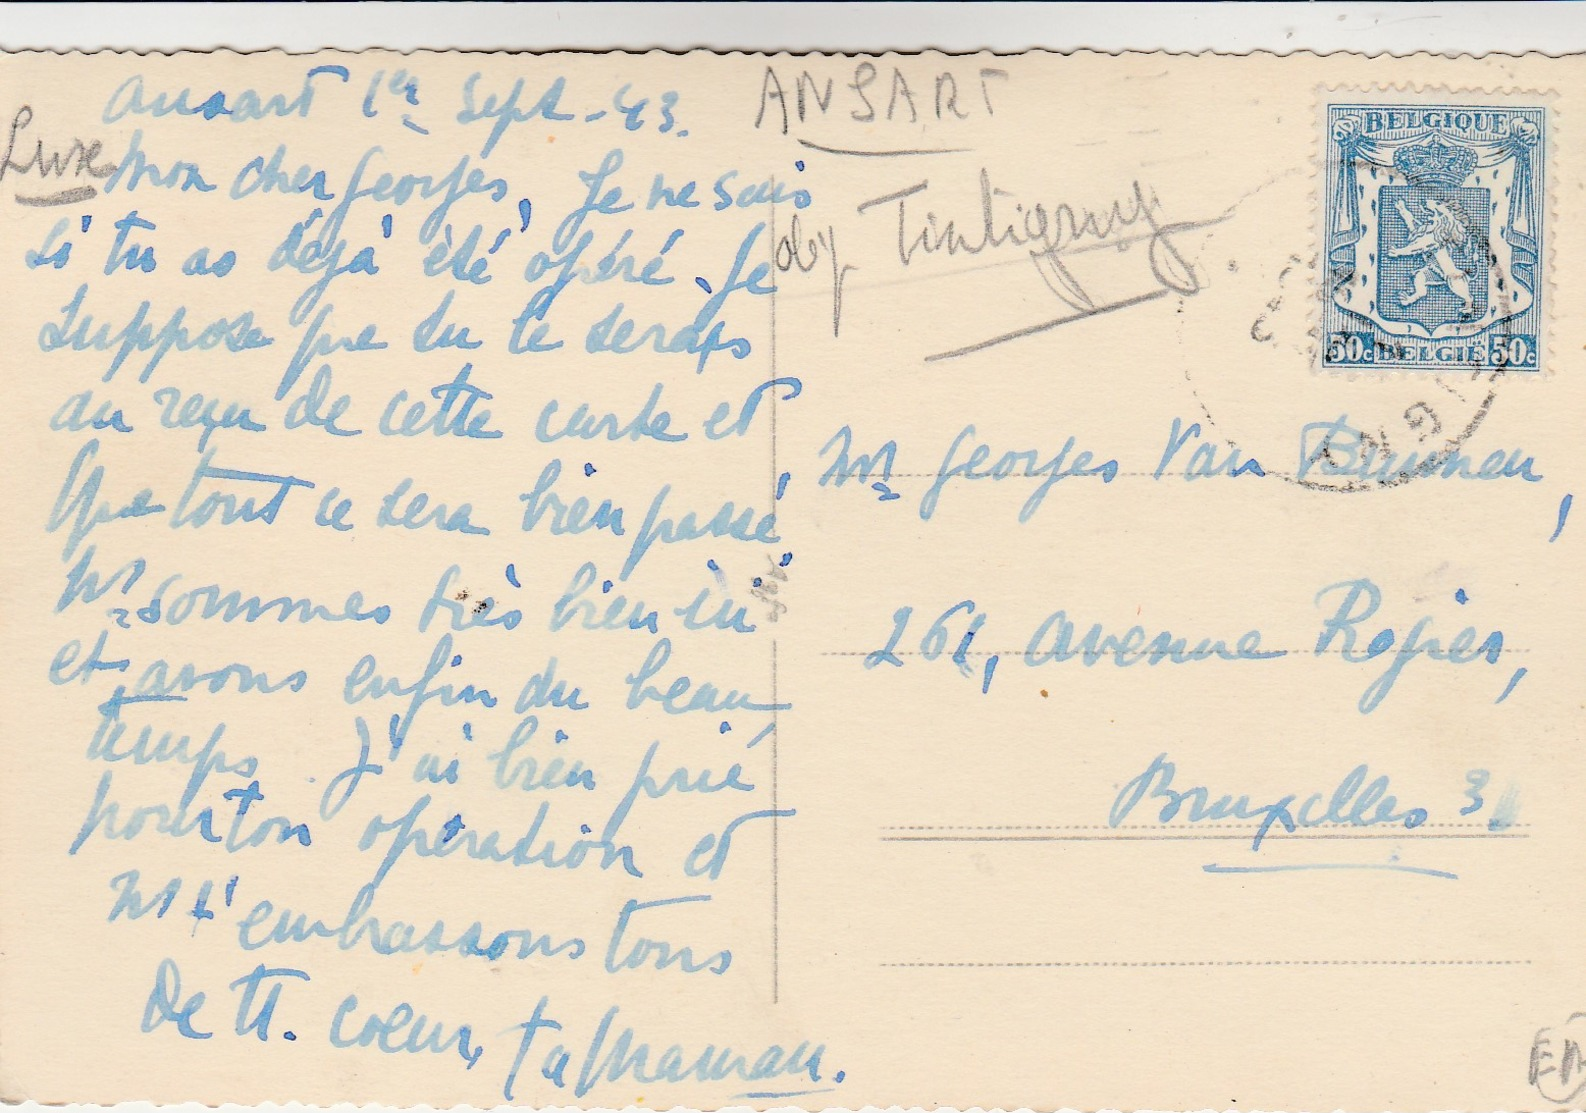 Ansart 1er Sept - 43.
Mon cher Georges, Je ne sais
si tu as déjà été opéré. Je
suppose que tu le seras
au reçu de cette carte et
que tout ce sera bien passé.
Ns sommes très bien ici
et avons enfin du beau
temps. J'ai bien prié
pour ton opération et
ns t'embrassons tous
de tt. coeur, ta Maman.
Luxe
ANSART
Tintigny
BELGIQUE
50c BELGIË 50c
Mr Georges Van
261, avenue Rogier,
Bruxelles 3